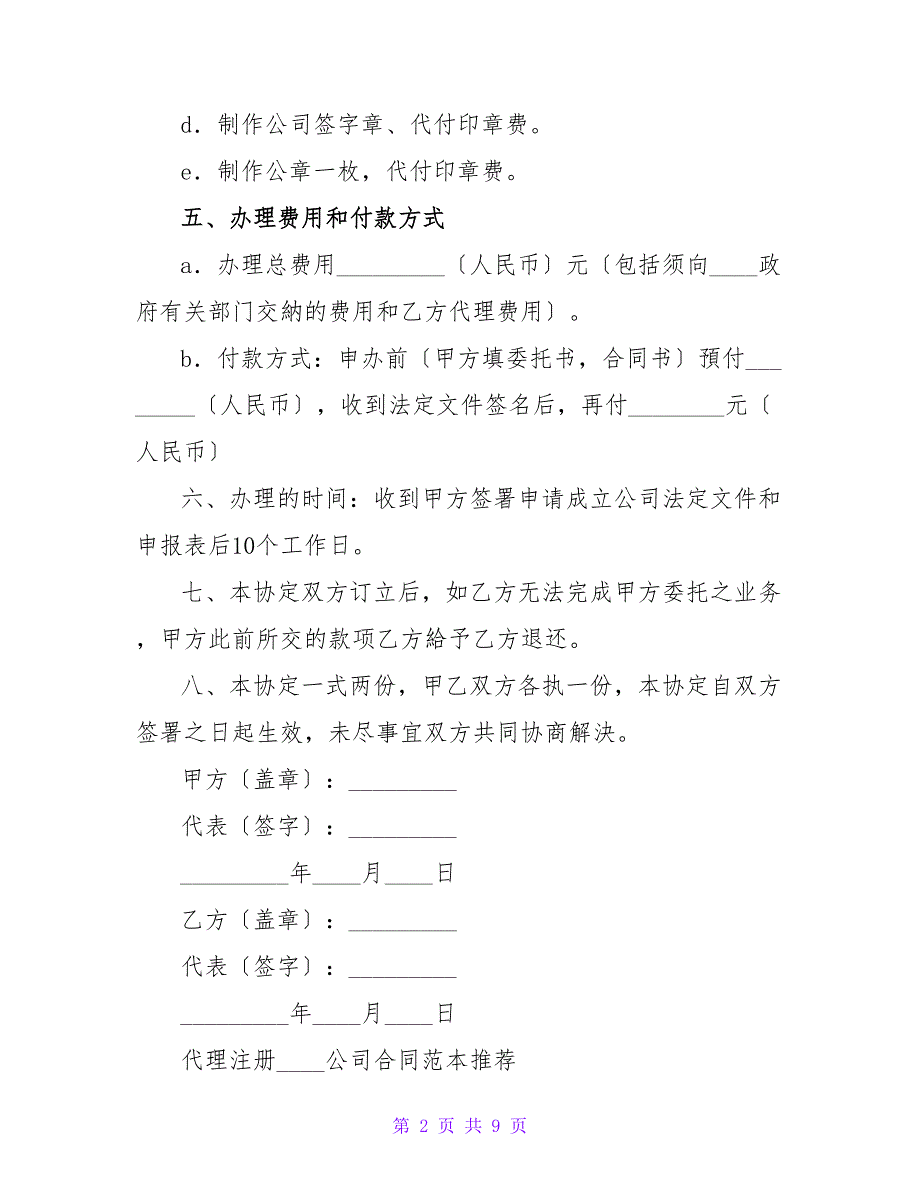 d．制作公司签字章、代付印章费。
e．制作公章一枚，代付印章费。
五、办理费用和付款方式
a．办理总费用_________〔人民币〕元〔包括须向____政
府有关部门交納的费用和乙方代理费用〕。
b．付款方式：申办前〔甲方填委托书，合同书〕預付___
_____〔人民币〕，收到法定文件签名后，再付________元〔
人民币〕
六、办理的时间：收到甲方签署申请成立公司法定文件和
申报表后10个工作日。
七、本协定双方订立后，如乙方无法完成甲方委托之业务
，甲方此前所交的款项乙方給予乙方退还。
八、本协定一式两份，甲乙双方各执一份，本协定自双方
签署之日起生效，未尽事宜双方共同协商解決。
甲方〔盖章〕：_________
代表〔签字〕：_________
_________年____月____日
乙方〔盖章〕：_________
代表〔签字〕：_________
_________年____月____日
代理注册____公司合同范本推荐
第 2 页 共 9 页